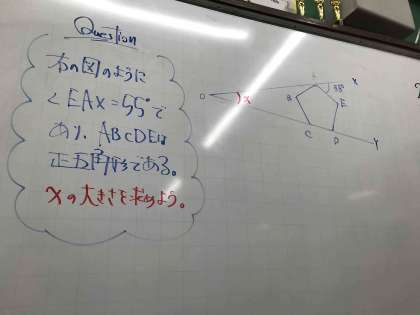 Question
右の図のように
∠EAX=55°で
あり、ABCDEは
正五角形である。
xの大きさを求めよう。
A
X
O
x
B
E
C
D
Y